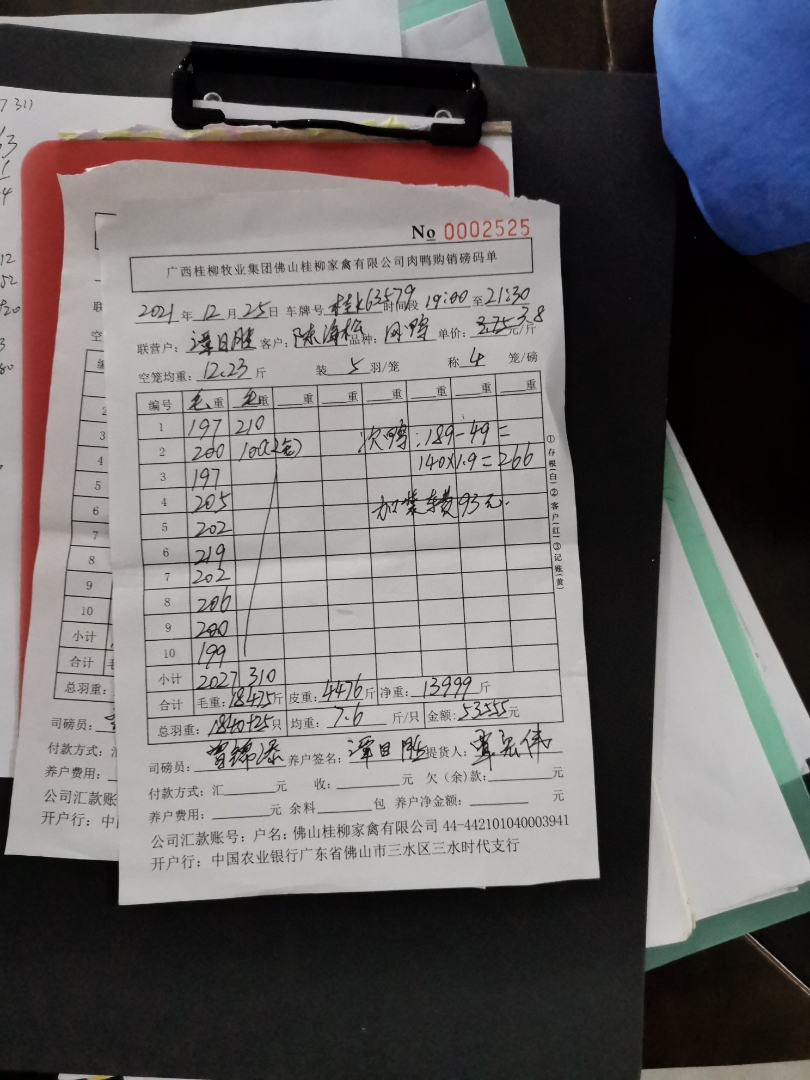 7311
No 0002525
广西桂柳牧业集团佛山桂柳家禽有限公司肉鸭购销磅码单
2021年12月25日 车牌号 桂K63579 时间段 19:00 至 21:30
联营户: 谭日胜 客户: 陈海松 品种: 肉鸭 单价: 3.75 3.8 元/斤
空笼均重: 12.23 斤 装 5 羽/笼 称 4 笼/磅
编号 毛重 毛重 重 重 重 重 重 重
1 197 210
2 200 100(2笼) 次鸭: 189-49=
3 197 140×1.9=266
4 205 加装车费93元.
5 202
6 219
7 202
8 206
9 200
10 199
小计 2027 310
合计 毛重: 18475斤 皮重: 4476斤 净重: 13999斤
总羽重: 1840+25只 均重: 7.6 斤/只 金额: 53555元
司磅员: 养户签名: 谭日胜 提货人:
付款方式: 汇 元 收: 元 欠(余)款: 元
养户费用: 元 余料 包 养户净金额: 元
公司汇款账号: 户名: 佛山桂柳家禽有限公司 44-442101040003941
开户行: 中国农业银行广东省佛山市三水区三水时代支行
①存根(白)②客户(红)③记账(黄)